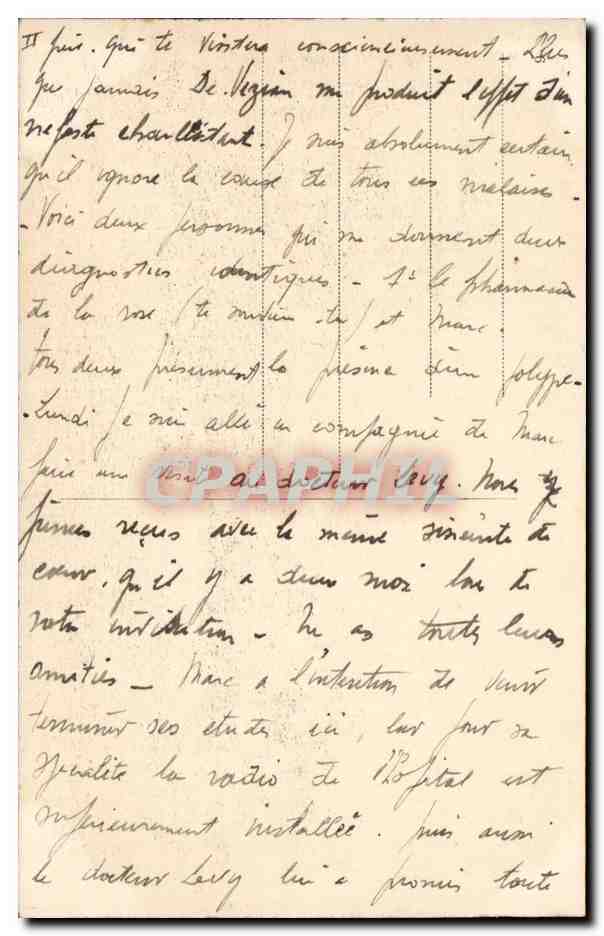 II fois. qui te visitera consciencieusement - Plus
que jamais De Vezian me produit l'effet d'un
nefaste charllatant. Je suis absolument certain
qu'il ignore la cause de tous ces malaises -
- Voici deux personnes qui me donnent deux
diagnostics identiques - 1° le pharmacien
de la rose (te souviens-tu) et Marc.
tous deux présument la présence d'un polype -
- Lundi je suis allé en compagnie de Marc
faire une visite au docteur Levy. Nous y
fûmes reçus avec la même sincérité de
cœur, qu'il y a deux mois lors de
notre invitation - Tu as toutes leurs
amitiés - Marc a l'intention de venir
terminer ses etudes ici, car pour sa
spécialité la radio de l'Hôpital est
superieurement installée. puis aussi
le docteur Levy lui a promis toute
CPAPHIL